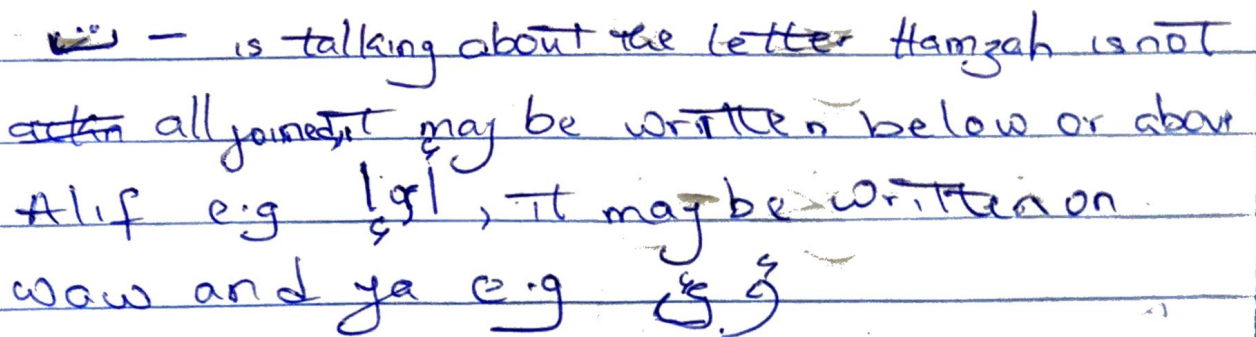 — is talking about the letter Hamzah is not
all joined, it may be written below or above
Alif e.g إ أ, it may be written on
waw and ya e.g ئ ؤ